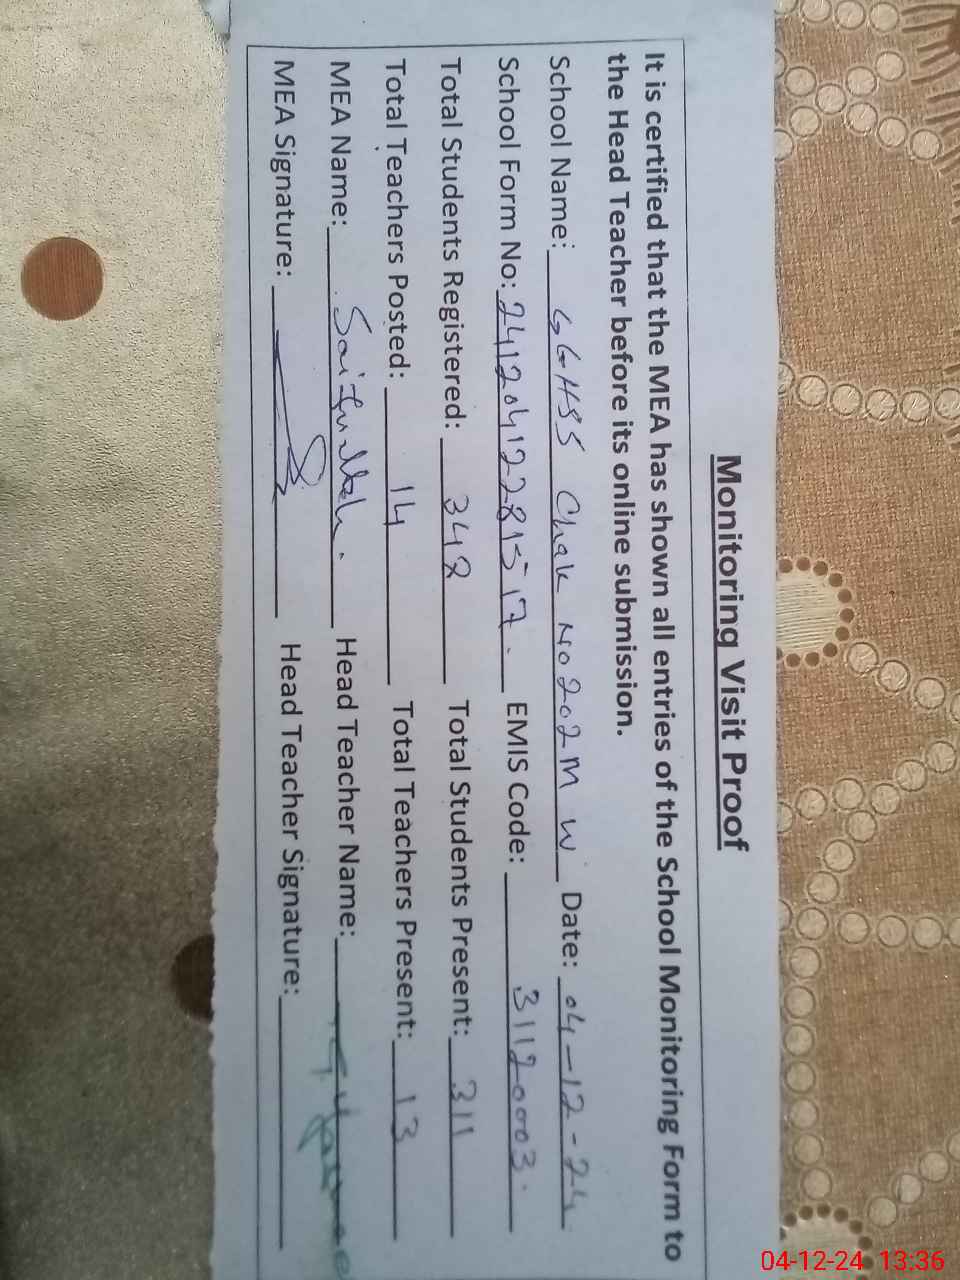 Monitoring Visit Proof
It is certified that the MEA has shown all entries of the School Monitoring Form to
the Head Teacher before its online submission.
School Name: GGHSS Chak No 202 M W Date: 04-12-24
School Form No: 24120412281517. EMIS Code: 31120003.
Total Students Registered: 342 Total Students Present: 311
Total Teachers Posted: 14 Total Teachers Present: 13
MEA Name: Saifullah. Head Teacher Name:
MEA Signature: Head Teacher Signature:
04-12-24 13:36